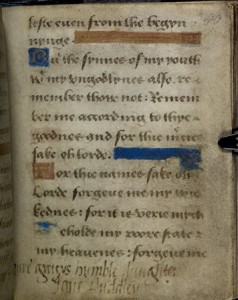 lyke euen from the begyn
nynge
But the synnes of my youth
& my vngodlynes also re-
member thow not: Remem
ber me accordig to thye
goodnes and for thie names
sake oh lorde.
For thie names sake oh
Lorde forgeue me my wic
kednes: for it is verie mych
Beholde my poore state:
my heauenes: forgeue me
humble daughter
Jane Duddley